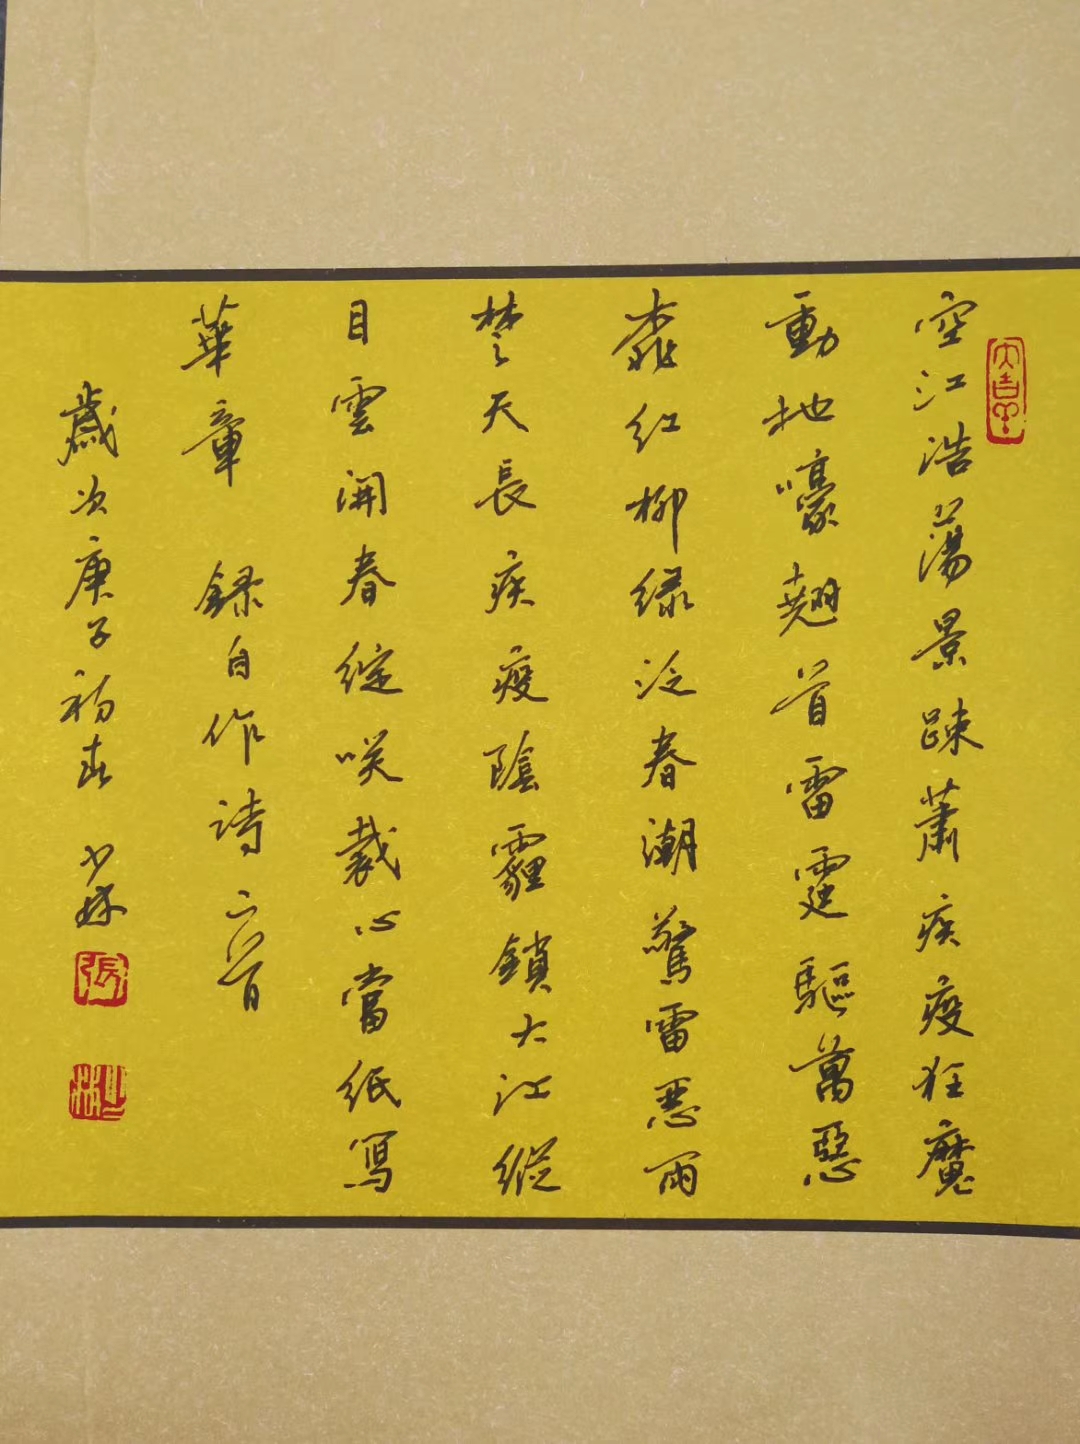 空江浩蕩景疎蕭疾疫狂魔
動地嚎翹首雷霆驅萬惡
桃紅柳綠泛春潮驚雷惡雨
楚天長疾疫陰霾鎖大江縱
目雲開春綻咲裁心當紙寫
華章 録自作詩二首
歲次庚子初春 少林
張
少林